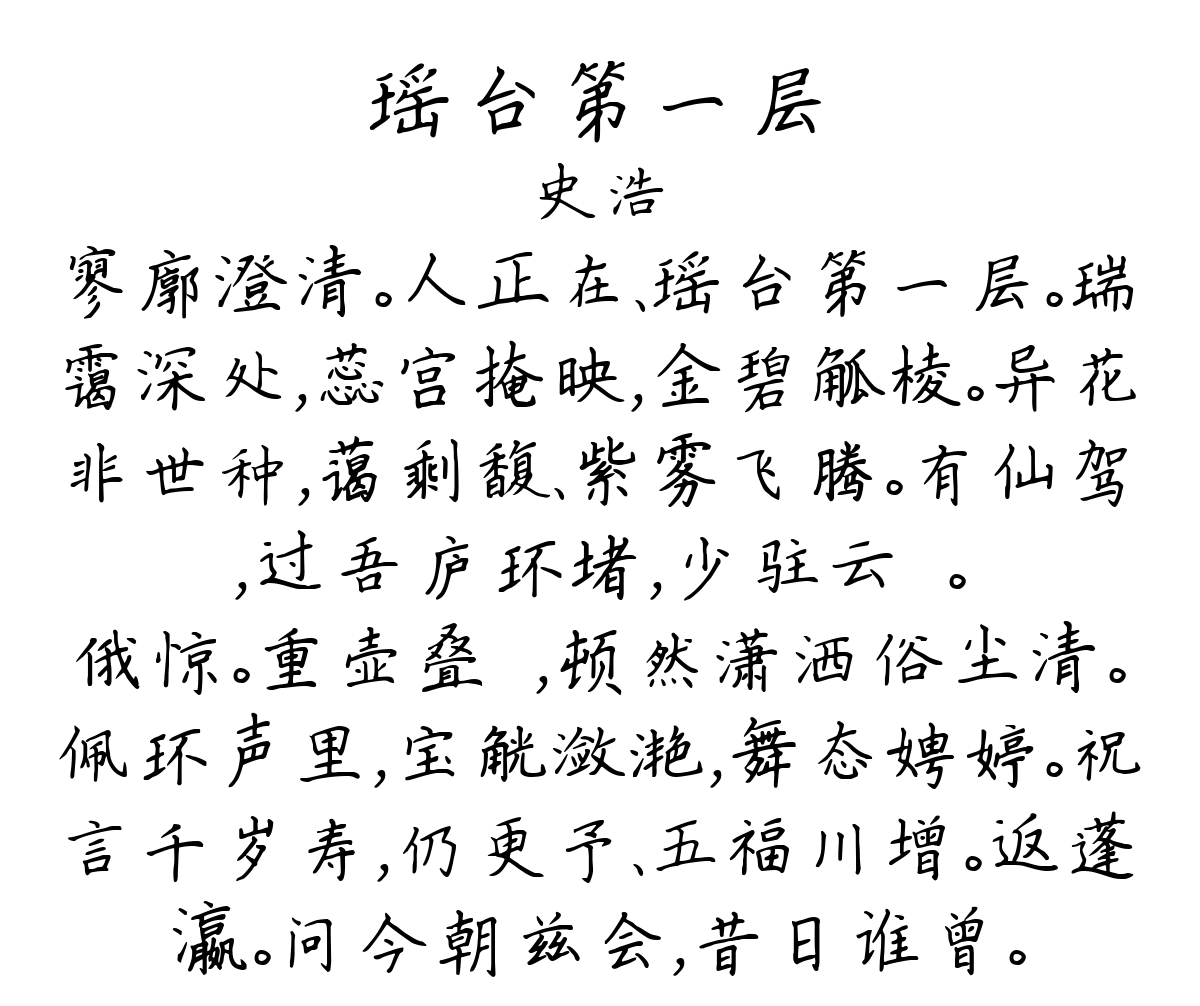 瑶台第一层
史浩
寥廓澄清。人正在、瑶台第一层。瑞
霭深处,蕊宫掩映,金碧觚棱。异花
非世种,蔼剩馥、紫雾飞腾。有仙驾
,过吾庐环堵,少驻云 。
俄惊。重壶叠 ,顿然潇洒俗尘清。
佩环声里,宝觥潋滟,舞态娉婷。祝
言千岁寿,仍更予、五福川增。返蓬
瀛。问今朝兹会,昔日谁曾。